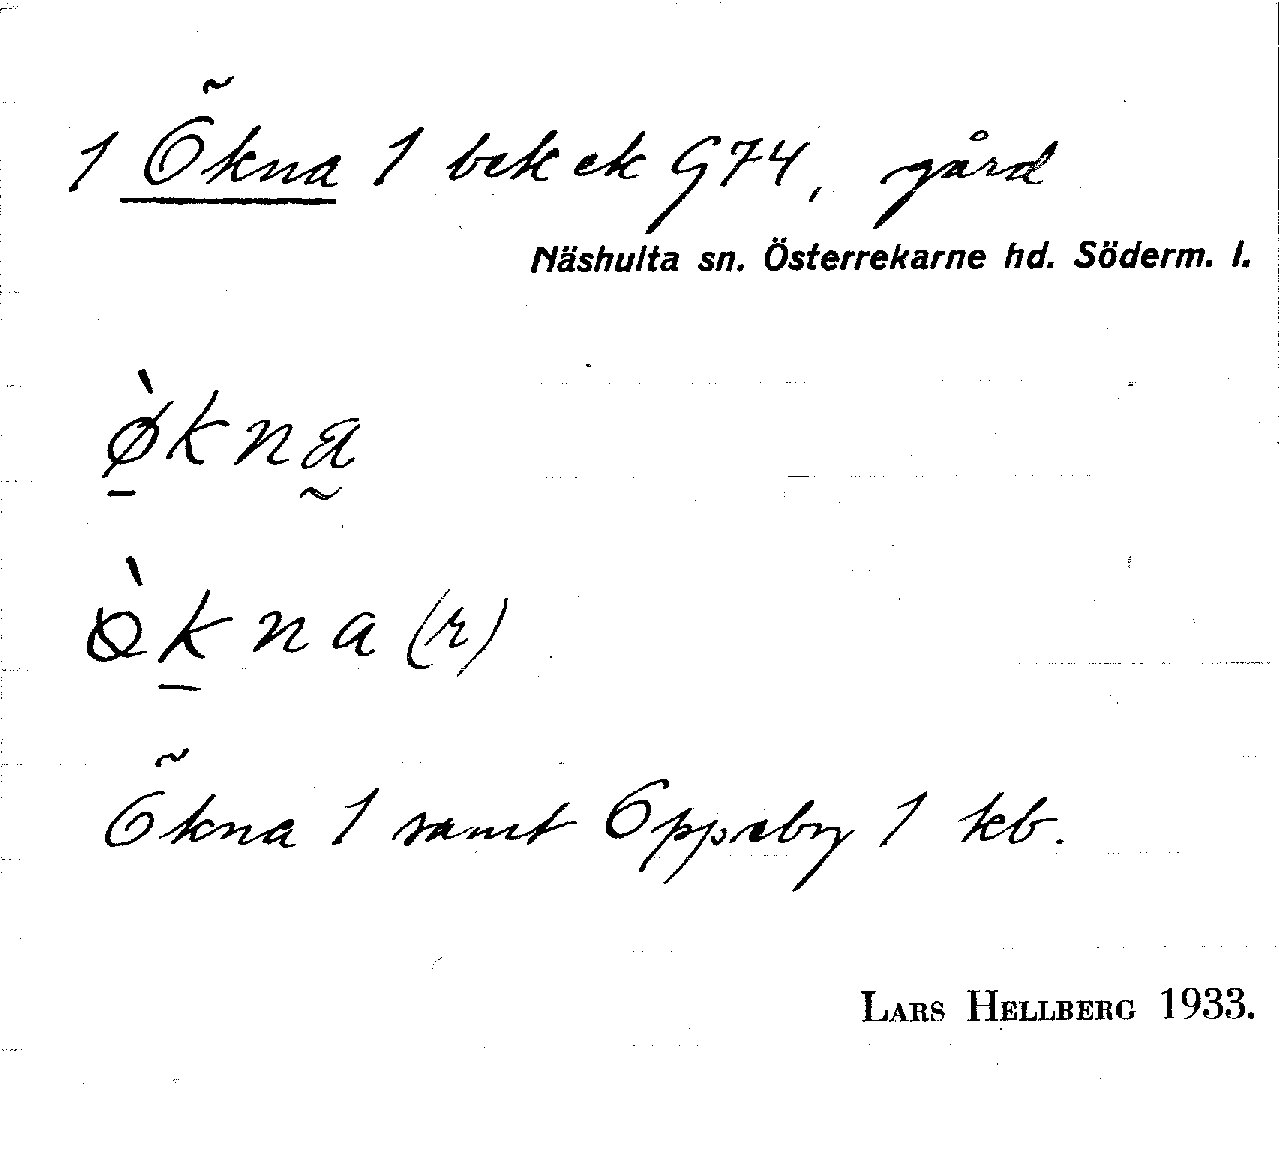 1 Ökna 1 bek ek G74, gård
Näshulta sn. Österrekarne hd. Söderm. l.
ø̀kna
ò̀kna(r)
Ökna 1 samt Oppeby 1 kb.
LARS HELLBERG 1933.